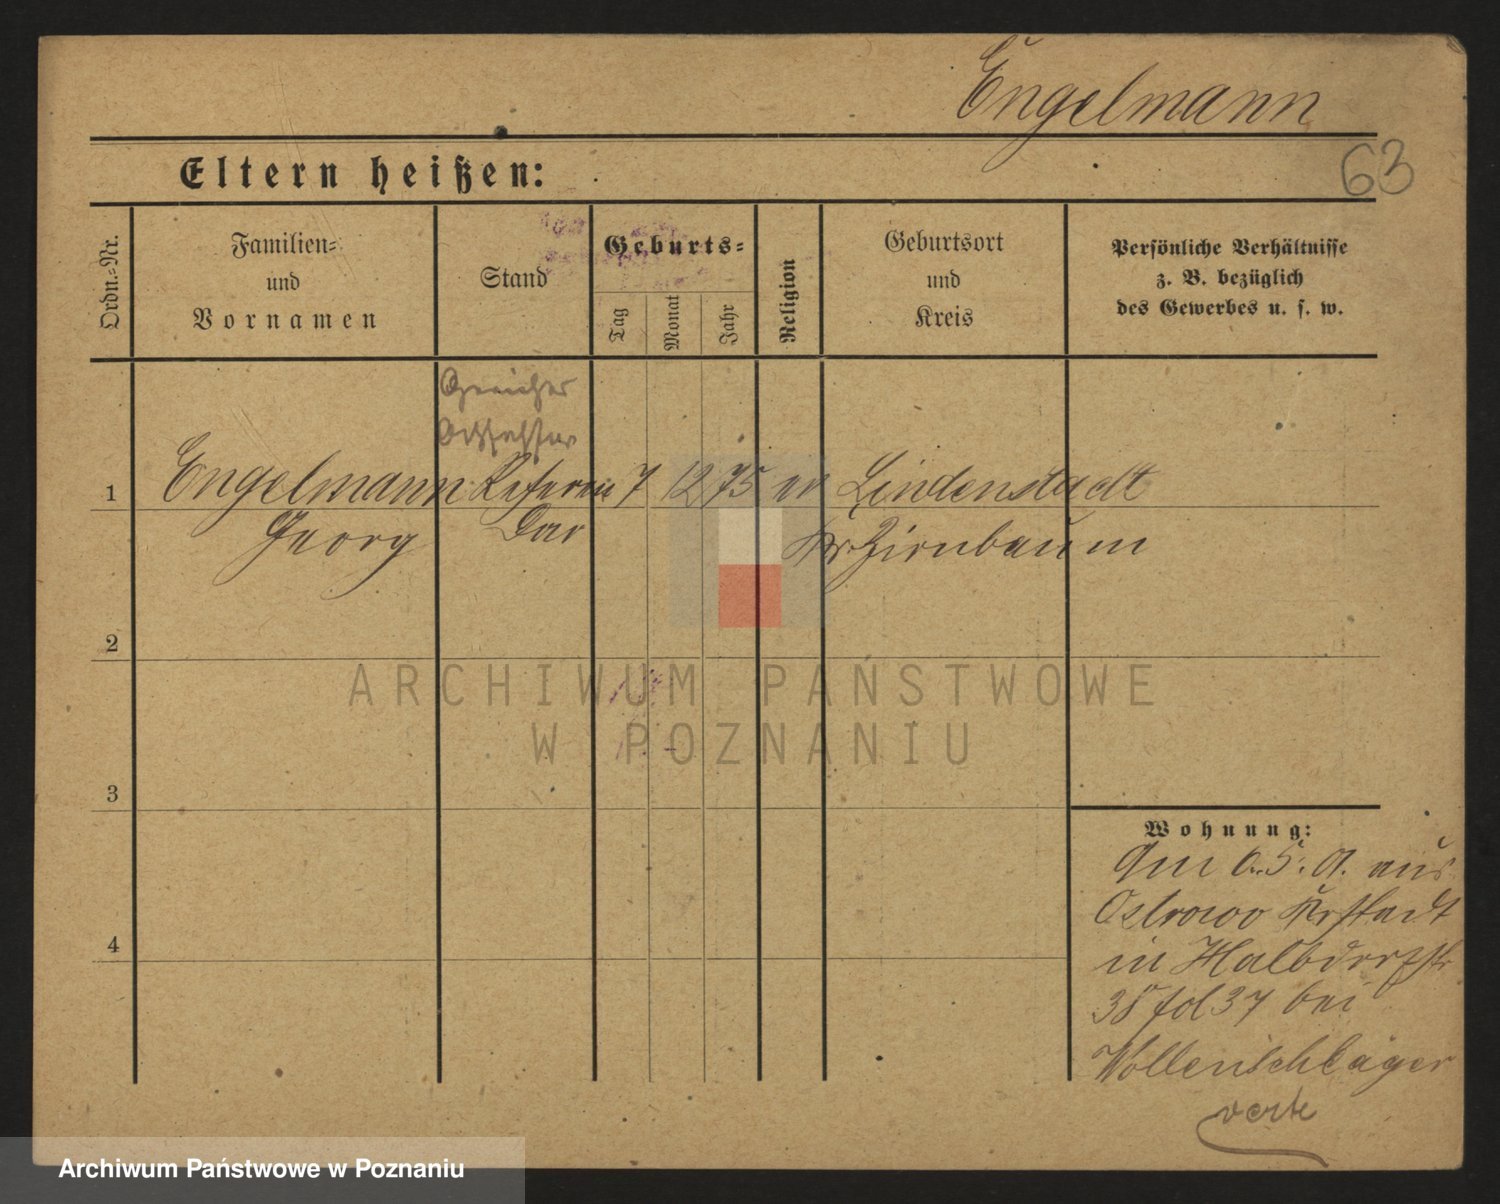 Engelmann
63
Eltern heißen:
Ordn.=Nr.
Familien=
und
Vornamen
Stand
Geburts=
Tag
Monat
Jahr
Religion
Geburtsort
und
Kreis
Persönliche Verhältnisse
z. B. bezüglich
des Gewerbes u. s. w.
1
Engelmann Referen 7 12 75 ev Lindenstadt
Georg dar Kr. Birnbaum
2
3
4
Wohnung:
Am 6.5. a. aus
Ostrowo Krstadt
in Halbdorfstr
35 fol 37 bei
Wollenschläger
verte
ARCHIWUM PAŃSTWOWE
W POZNANIU
Archiwum Państwowe w Poznaniu